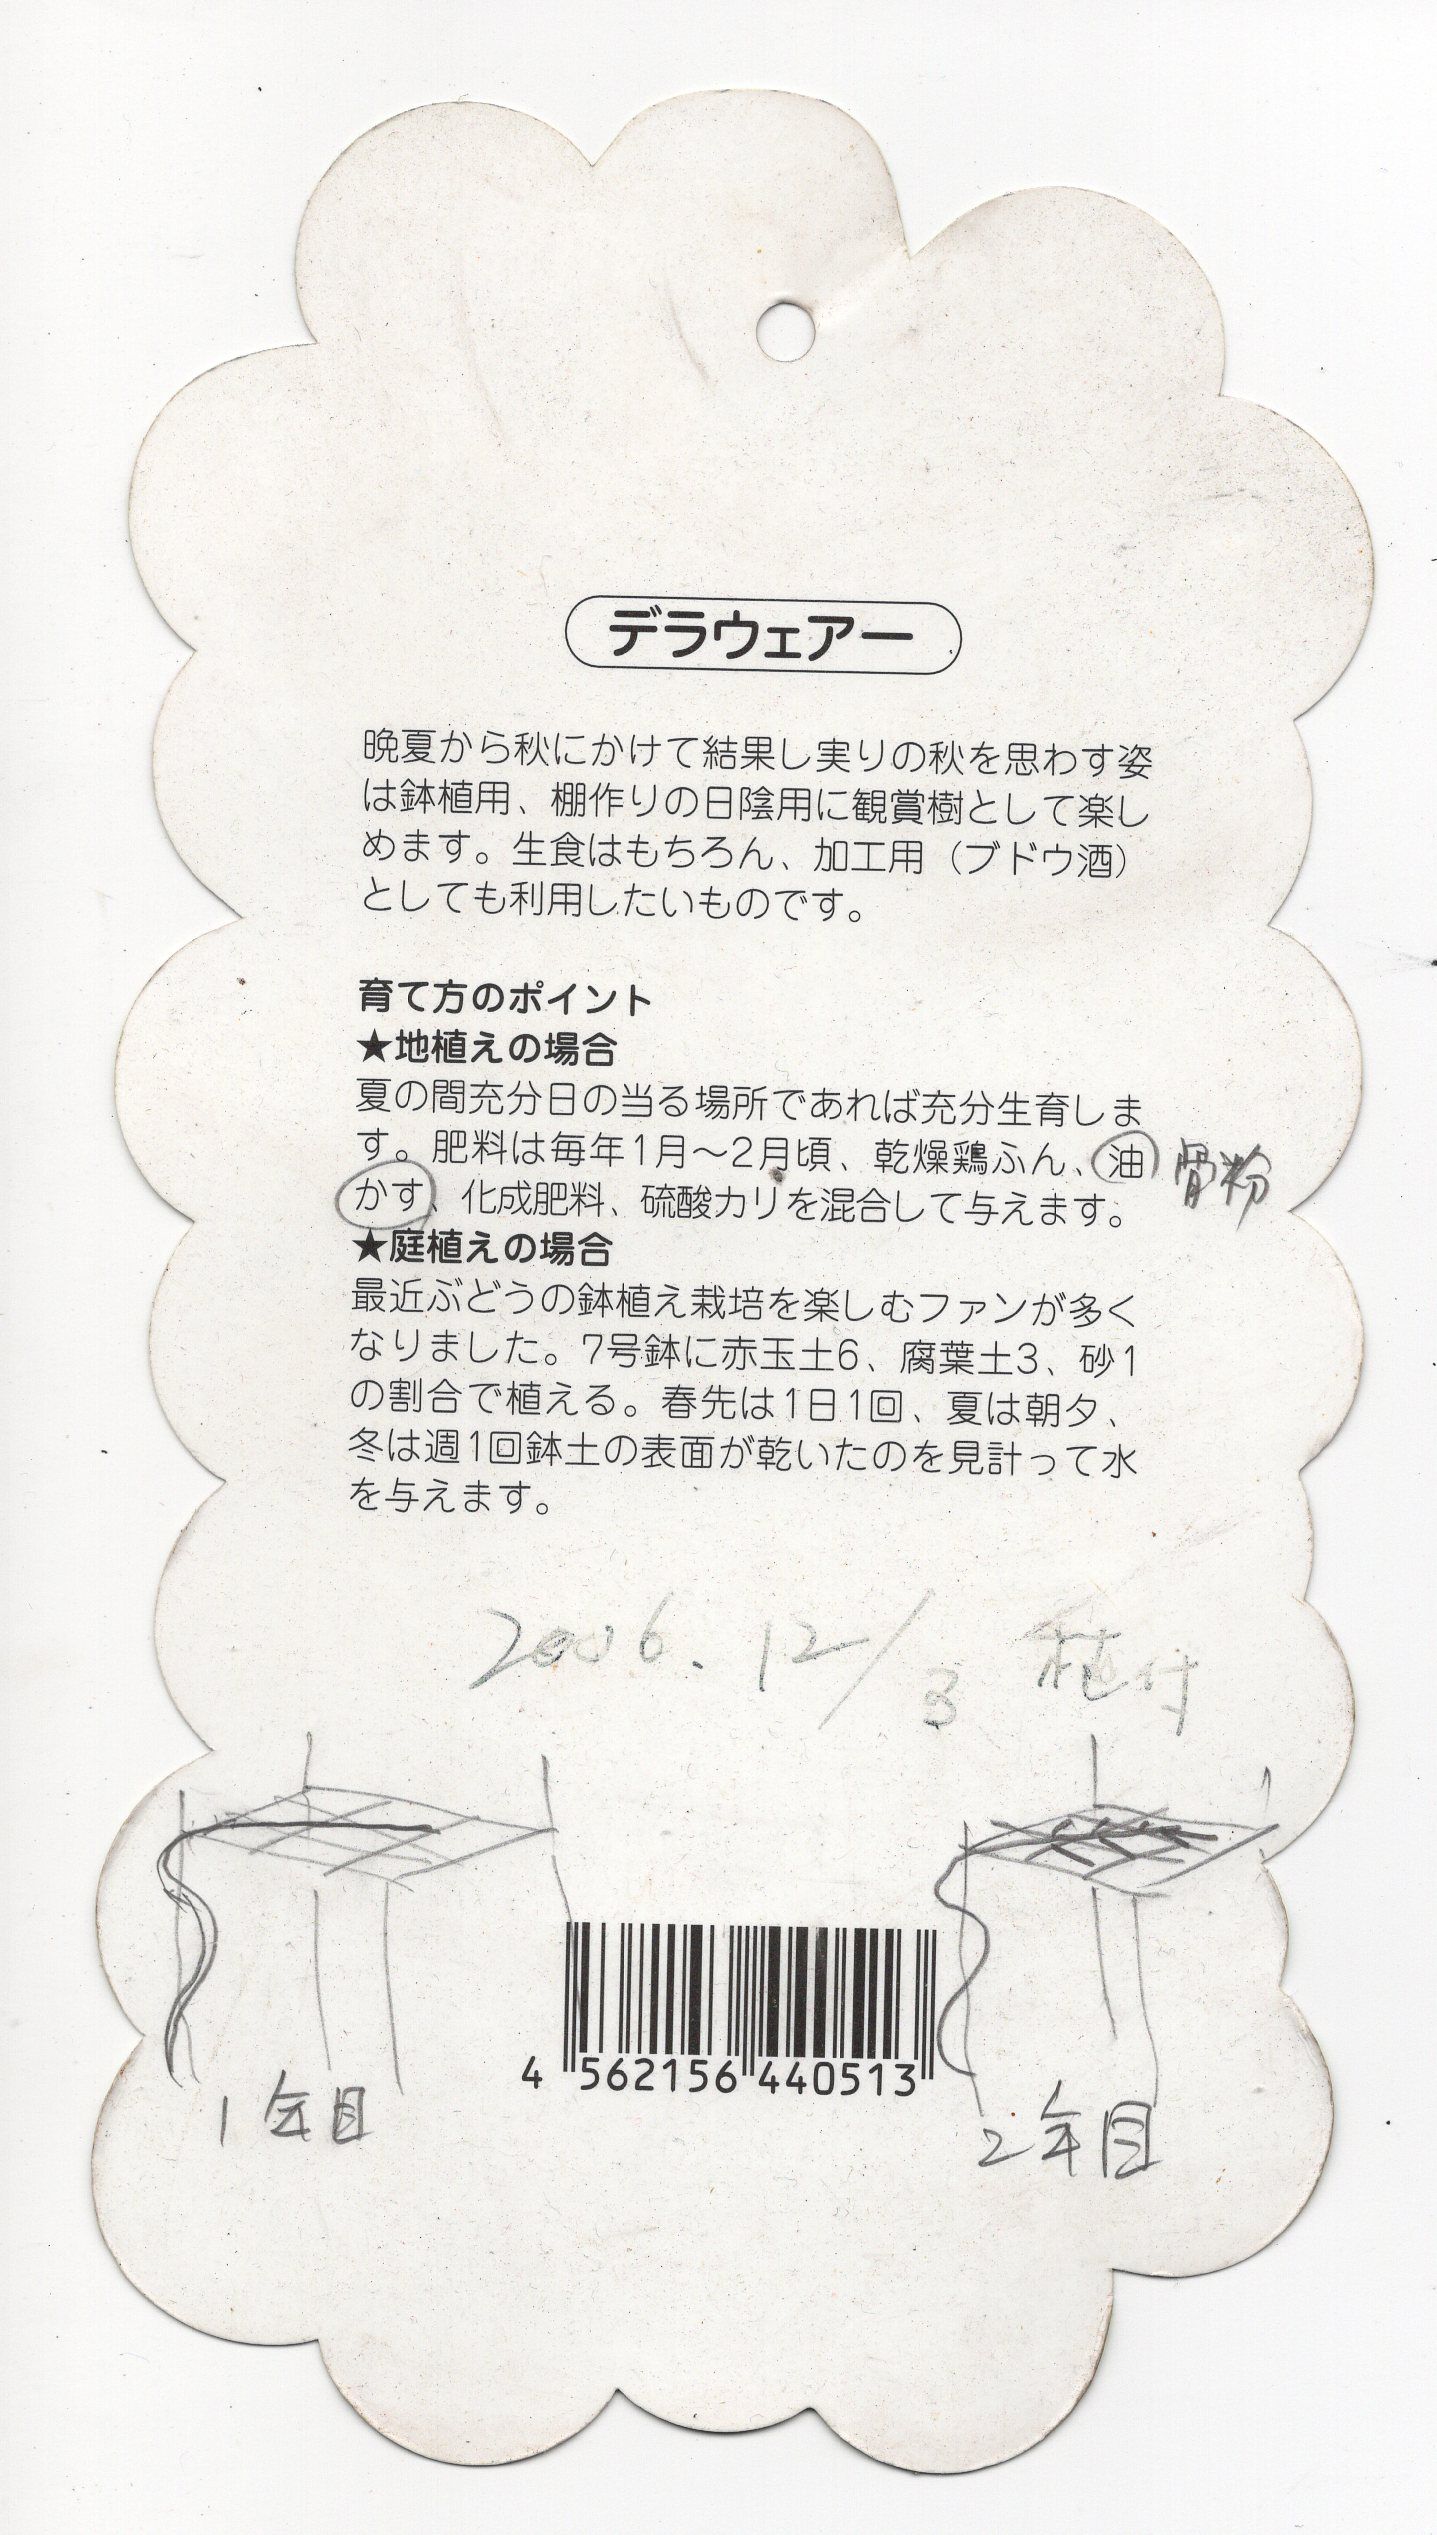 デラウェアー
晩夏から秋にかけて結果し実りの秋を思わす姿
は鉢植用、棚作りの日陰用に観賞樹として楽し
めます。生食はもちろん、加工用（ブドウ酒）
としても利用したいものです。
育て方のポイント
★地植えの場合
夏の間充分日の当る場所であれば充分生育しま
す。肥料は毎年1月〜2月頃、乾燥鶏ふん、油 骨粉
かす、化成肥料、硫酸カリを混合して与えます。
★庭植えの場合
最近ぶどうの鉢植え栽培を楽しむファンが多く
なりました。7号鉢に赤玉土6、腐葉土3、砂1
の割合で植える。春先は1日1回、夏は朝夕、
冬は週1回鉢土の表面が乾いたのを見計って水
を与えます。
2006.12/3 植付
4 562156 440513
1年目
2年目